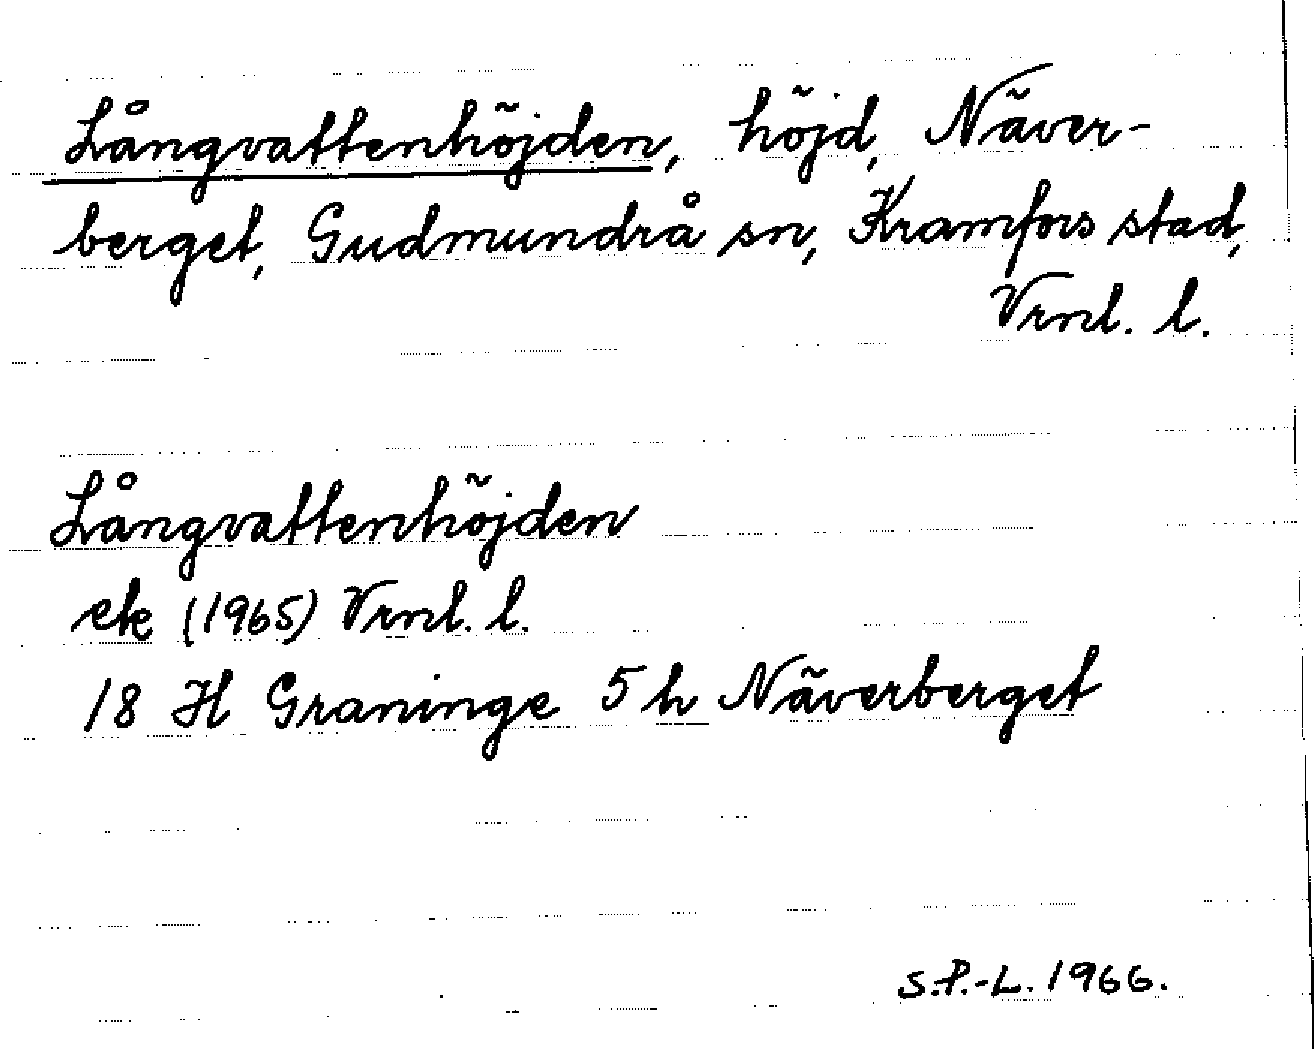 Långvattenhöjden, höjd, Näver-
berget, Gudmundrå sn, Kramfors stad,
Vrnl. l.
Långvattenhöjden
ek (1965) Vrnl. l.
18 H Graninge 5 h Näverberget
S.P.-L. 1966.